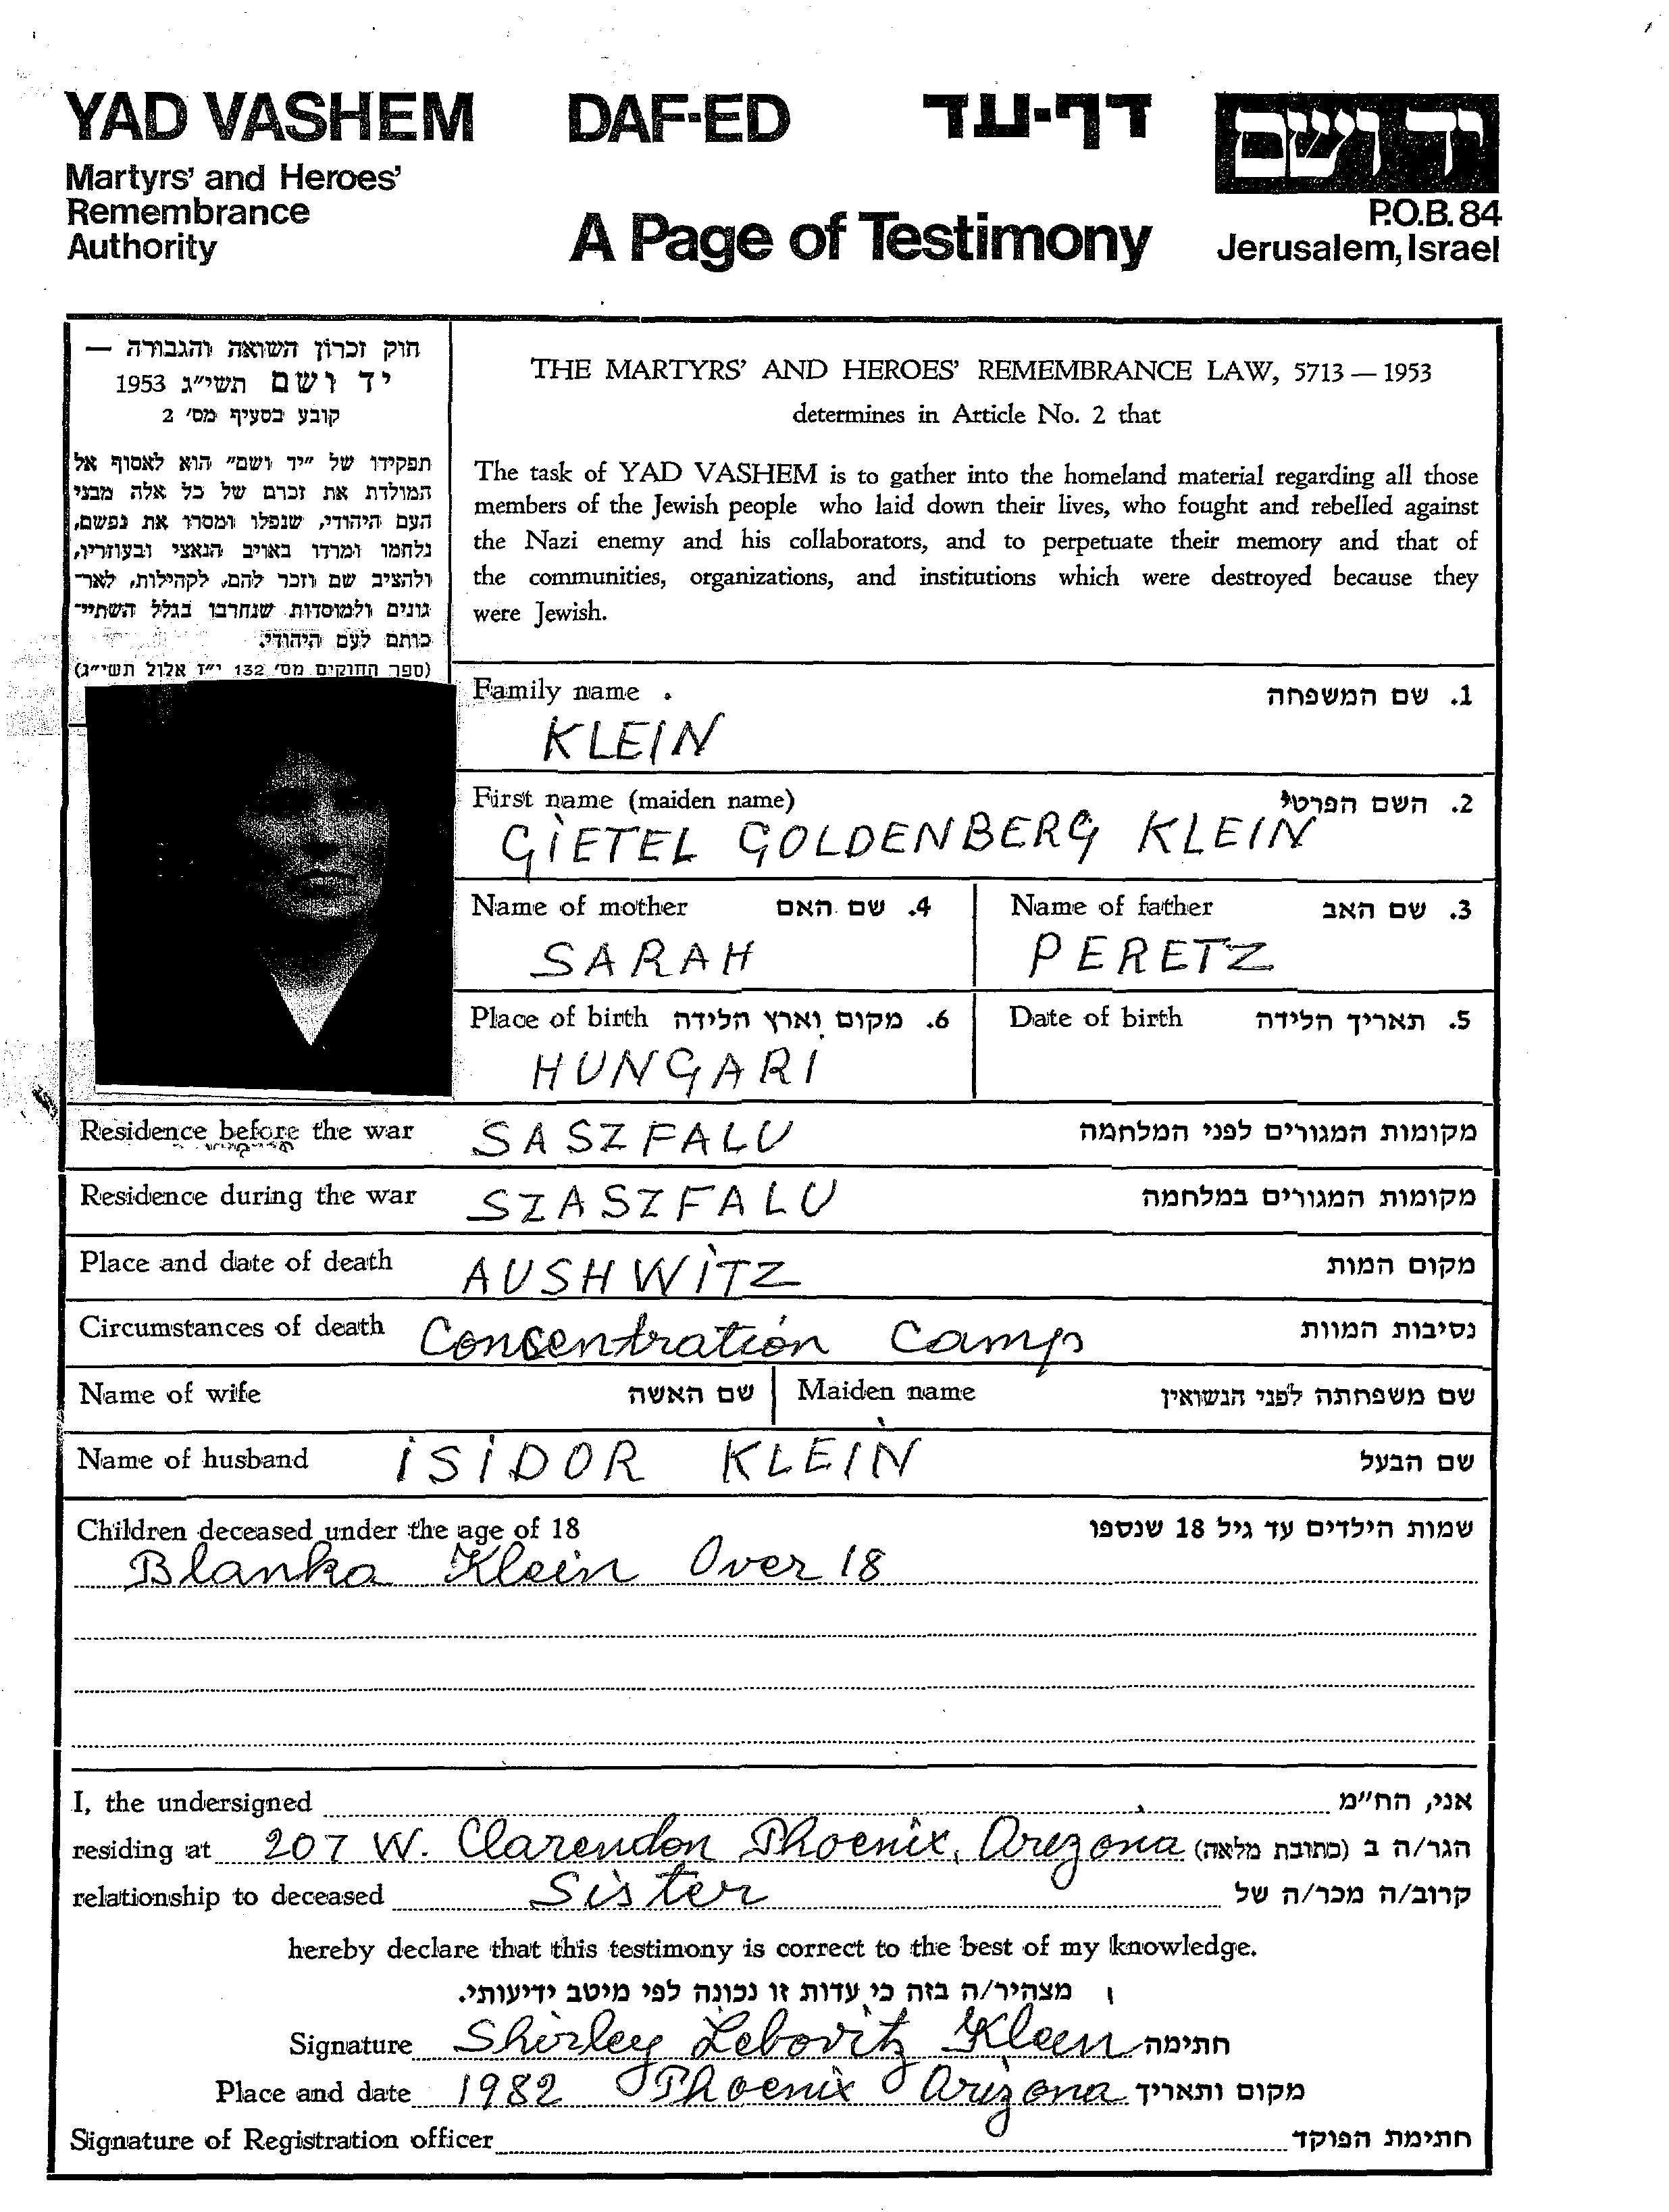 YAD VASHEM DAF-ED דף-עד יד ושם
Martyrs' and Heroes'
Remembrance
Authority
A Page of Testimony
P.O.B. 84
Jerusalem, Israel
חוק זכרון השואה והגבורה —
יד ושם תשי״ג 1953
קובע בסעיף מס׳ 2
תפקידו של ״יד ושם״ הוא לאסוף אל
המולדת את זכרם של כל אלה מבני
העם היהודי, שנפלו ומסרו את נפשם,
נלחמו ומרדו באויב הנאצי ובעוזריו,
ולהציב שם וזכר להם, לקהילות, לאר־
גונים ולמוסדות שנחרבו בגלל השתיי־
כותם לעם היהודי.
(ספר החוקים מס׳ 132 י״ז אלול תשי״ג)
THE MARTYRS' AND HEROES' REMEMBRANCE LAW, 5713 — 1953
determines in Article No. 2 that
The task of YAD VASHEM is to gather into the homeland material regarding all those
members of the Jewish people who laid down their lives, who fought and rebelled against
the Nazi enemy and his collaborators, and to perpetuate their memory and that of
the communities, organizations, and institutions which were destroyed because they
were Jewish.
Family name .1 שם המשפחה
KLEIN
First name (maiden name) .2 השם הפרטי
GIETEL GOLDENBERG KLEIN
Name of mother .4 שם האם Name of father .3 שם האב
SARAH PERETZ
Place of birth .6 מקום וארץ הלידה Date of birth .5 תאריך הלידה
HUNGARI
Residence before the war SASZFALU מקומות המגורים לפני המלחמה
Residence during the war SZASZFALU מקומות המגורים במלחמה
Place and date of death AUSHWITZ מקום המות
Circumstances of death Consentration Camp נסיבות המוות
Name of wife שם האשה Maiden name שם משפחתה לפני הנשואין
Name of husband ISIDOR KLEIN שם הבעל
Children deceased under the age of 18 שמות הילדים עד גיל 18 שנספו
Blanka Klein Over 18
I, the undersigned אני, הח״מ
residing at 207 W. Clarendon Phoenix, Arezona הגר/ה ב (כתובת מלאה)
relationship to deceased Sister קרוב/ה מכר/ה של
hereby declare that this testimony is correct to the best of my knowledge.
מצהיר/ה בזה כי עדות זו נכונה לפי מיטב ידיעותי.
Signature Shirley Lebovitz Klein חתימה
Place and date 1982 Phoenix Arizona מקום ותאריך
Signature of Registration officer חתימת הפוקד